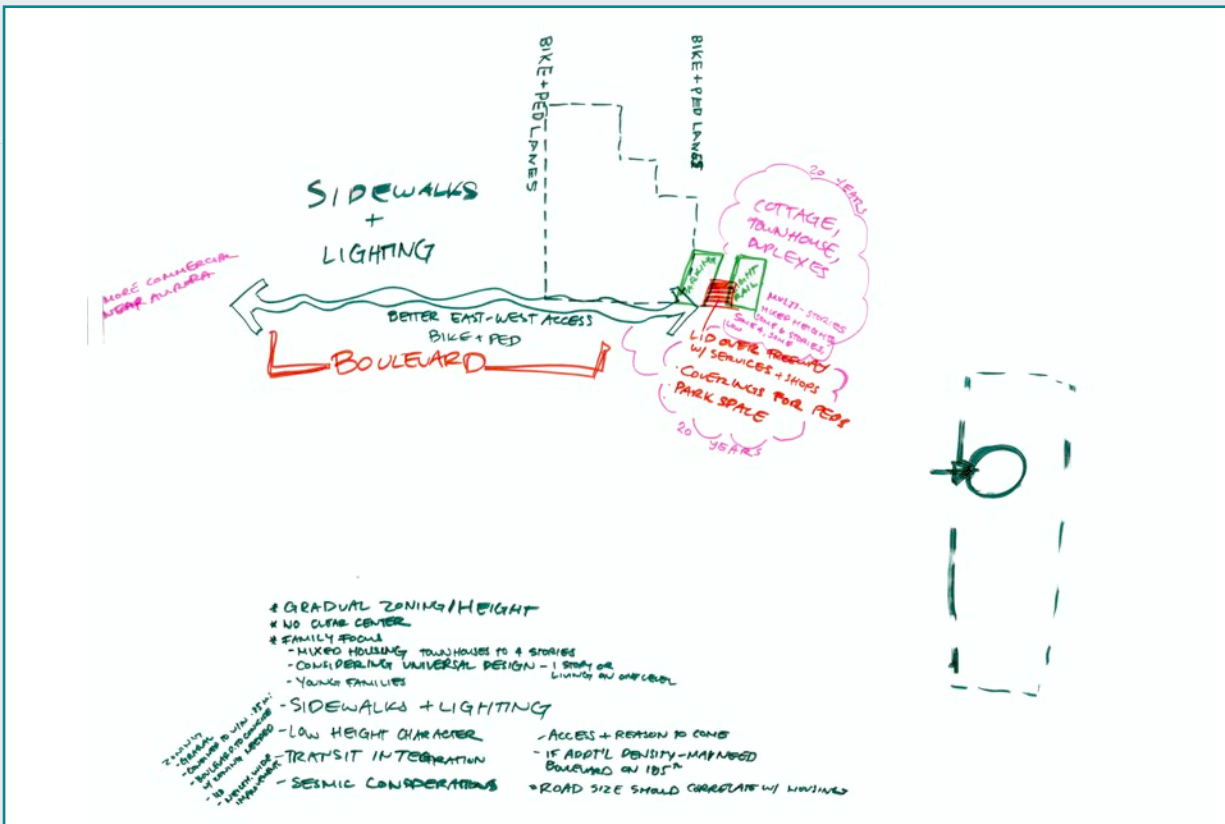 BIKE + PED LANES
BIKE + PED LANES
SIDEWALKS
+
LIGHTING
MORE COMMERCIAL
NEAR AURORA
BETTER EAST-WEST ACCESS
BIKE + PED
BOULEVARD
20 YEARS
COTTAGE,
TOWNHOUSE,
DUPLEXES
PARKING
LIGHT
RAIL
MULTI-STORIES
MIXED HEIGHTS
SOME 6 STORIES,
SOME 4, SOME
LOW
LID OVER FREEWAY
W/ SERVICES + SHOPS
· COVERINGS FOR PEDS
· PARK SPACE
20 YEARS
* GRADUAL ZONING/HEIGHT
* NO CLEAR CENTER
* FAMILY FOCUS
- MIXED HOUSING TOWNHOUSES TO 4 STORIES
- CONSIDERING UNIVERSAL DESIGN - 1 STORY OR
LIVING ON ONE LEVEL
- YOUNG FAMILIES
- SIDEWALKS + LIGHTING
- LOW HEIGHT CHARACTER
- TRANSIT INTEGRATION
- SEISMIC CONSIDERATIONS
- ACCESS + REASON TO COME
- IF ADDT'L DENSITY - MAY NEED
BOULEVARD ON 185TH
* ROAD SIZE SHOULD CORRELATE W/ HOUSING
ZONING
- GRADUAL
- BOULEVARD TO
W/ ZONING NEEDED